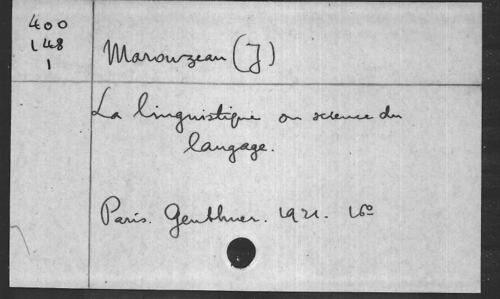 400
148
1
Marouzeau (J)
La linguistique ou science du
langage.
Paris. Geuthner. 1921. 16º